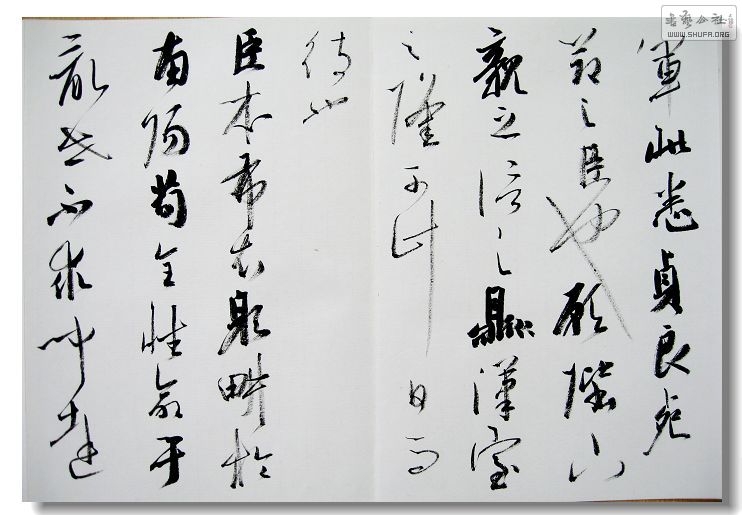 軍此悉貞良死
節之臣也願陛下
親之信之則漢室
之隆可計日而
待也
臣本布衣躬畊於
南陽苟全性命于
亂世不求聞達
书艺公社
WWW.SHUFA.ORG